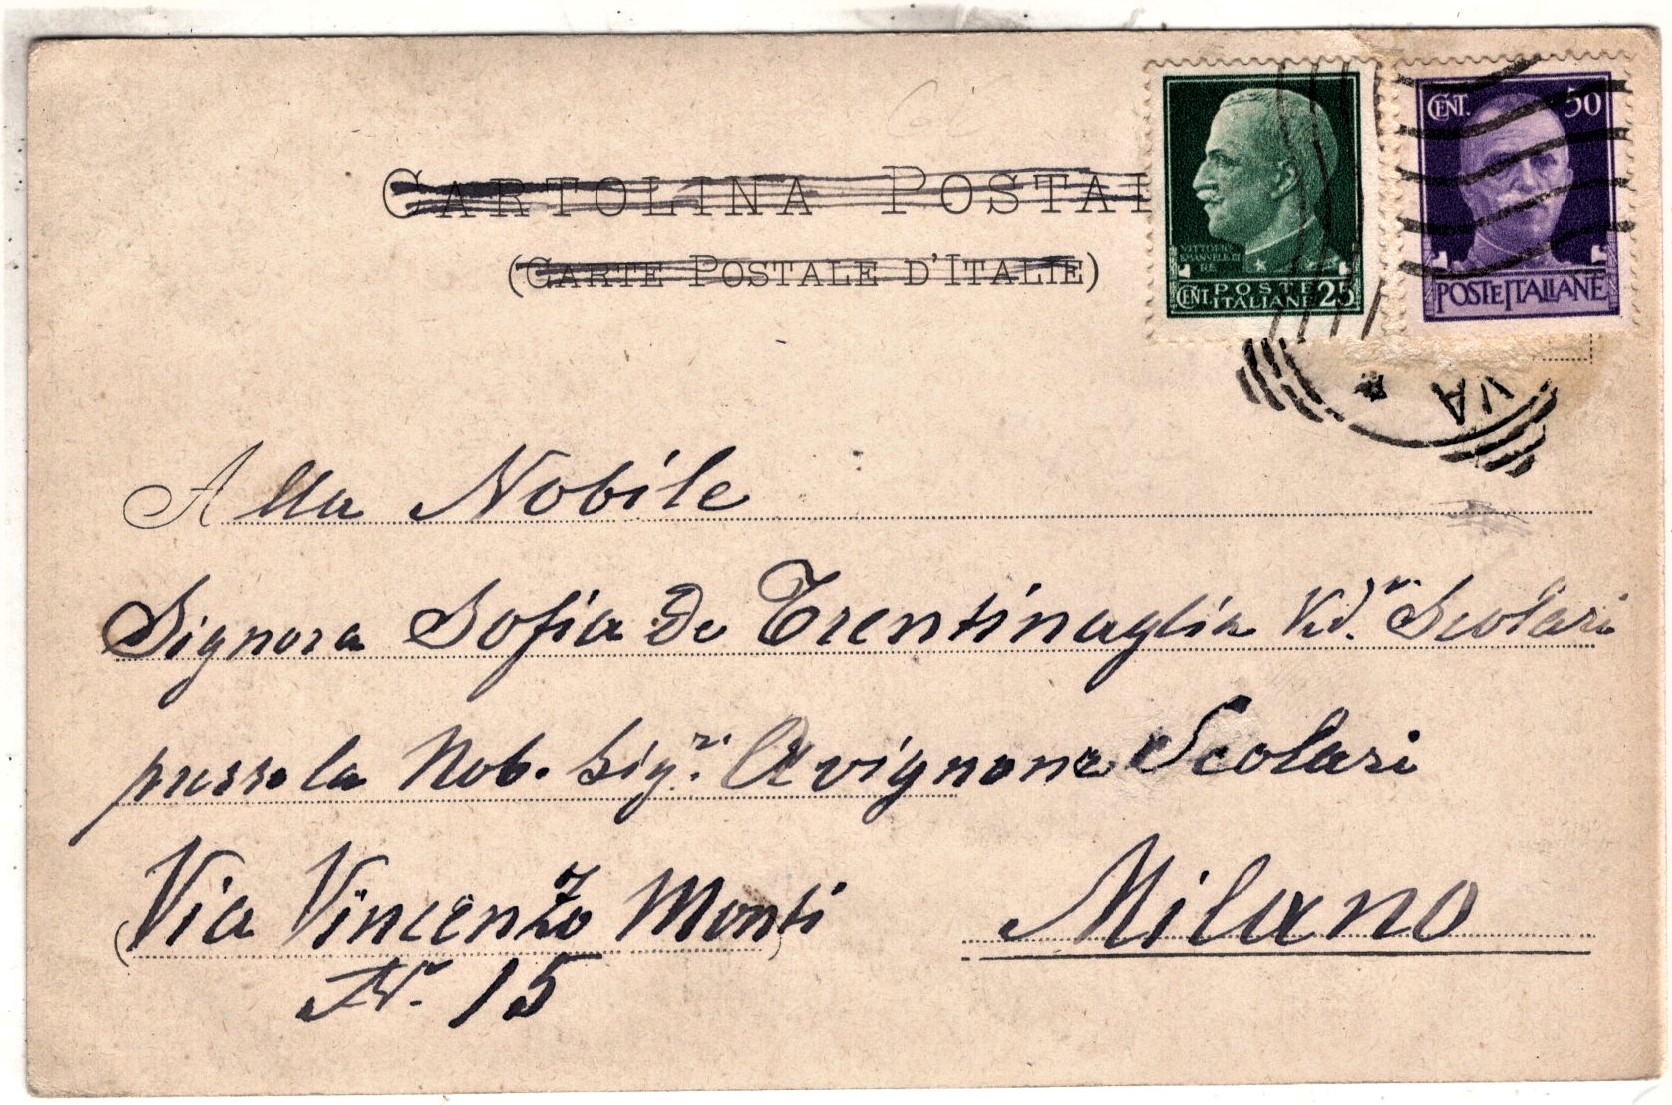 CARTOLINA POSTAL
(CARTE POSTALE D'ITALIE)
VITTORIO
EMANUELE III
RE
CENT. POSTE ITALIANE 25
CENT. 50
POSTE ITALIANE
VA
Alla Nobile
Signora Sofia De Trentinaglia Vd.ª Scolari
presso la Nob. Sig.ri Avignone Scolari
Via Vincenzo Monti
Nº. 15
Milano